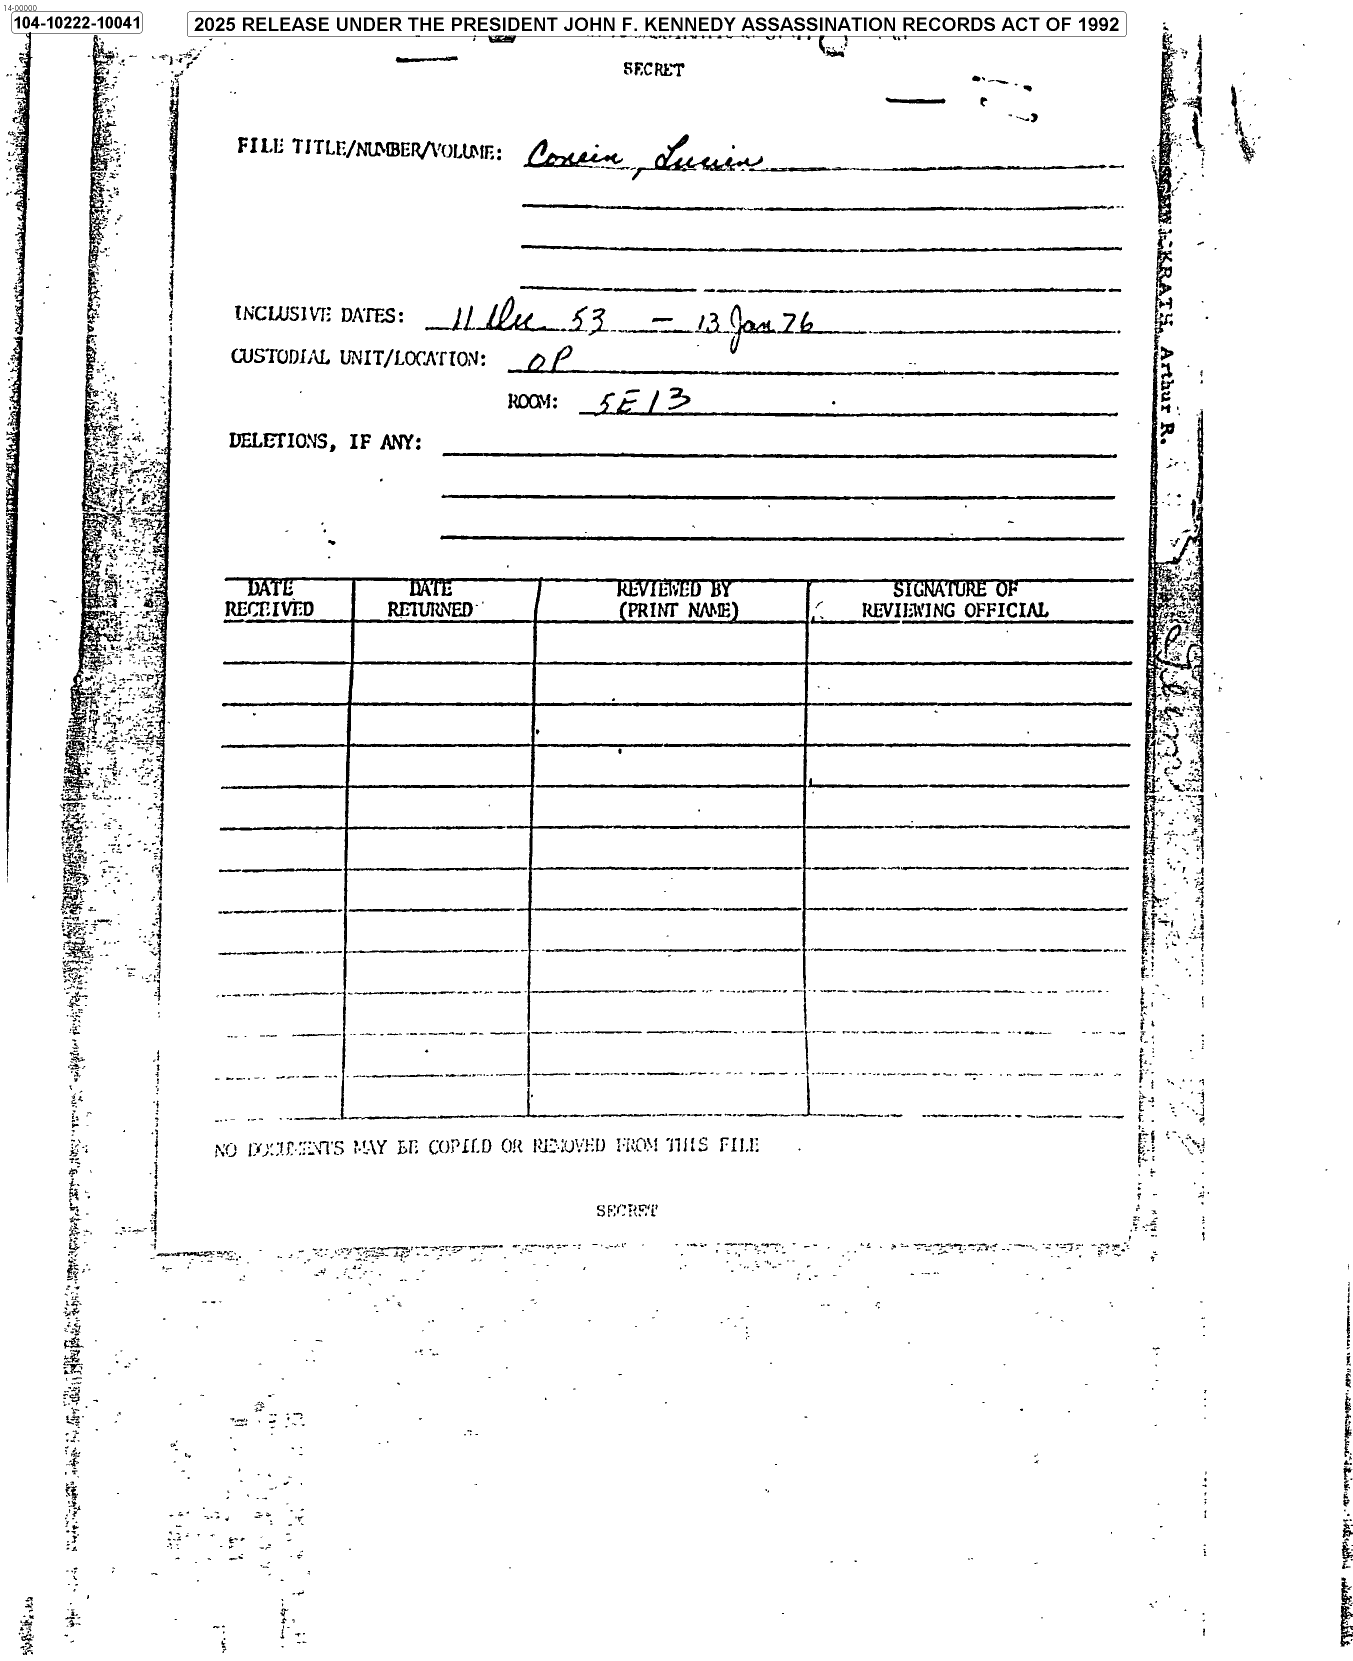 14-00000
104-10222-10041
2025 RELEASE UNDER THE PRESIDENT JOHN F. KENNEDY ASSASSINATION RECORDS ACT OF 1992
SECRET
FILE TITLE/NUMBER/VOLUME: Conein, Lucien
INCLUSIVE DATES: 11 Dec 53 — 13 Jan 76
CUSTODIAL UNIT/LOCATION: OP
ROOM: 5E13
DELETIONS, IF ANY:
DATE RECEIVED
DATE RETURNED
REVIEWED BY (PRINT NAME)
SIGNATURE OF REVIEWING OFFICIAL
NO DOCUMENTS MAY BE COPIED OR REMOVED FROM THIS FILE
SECRET
Arthur R.